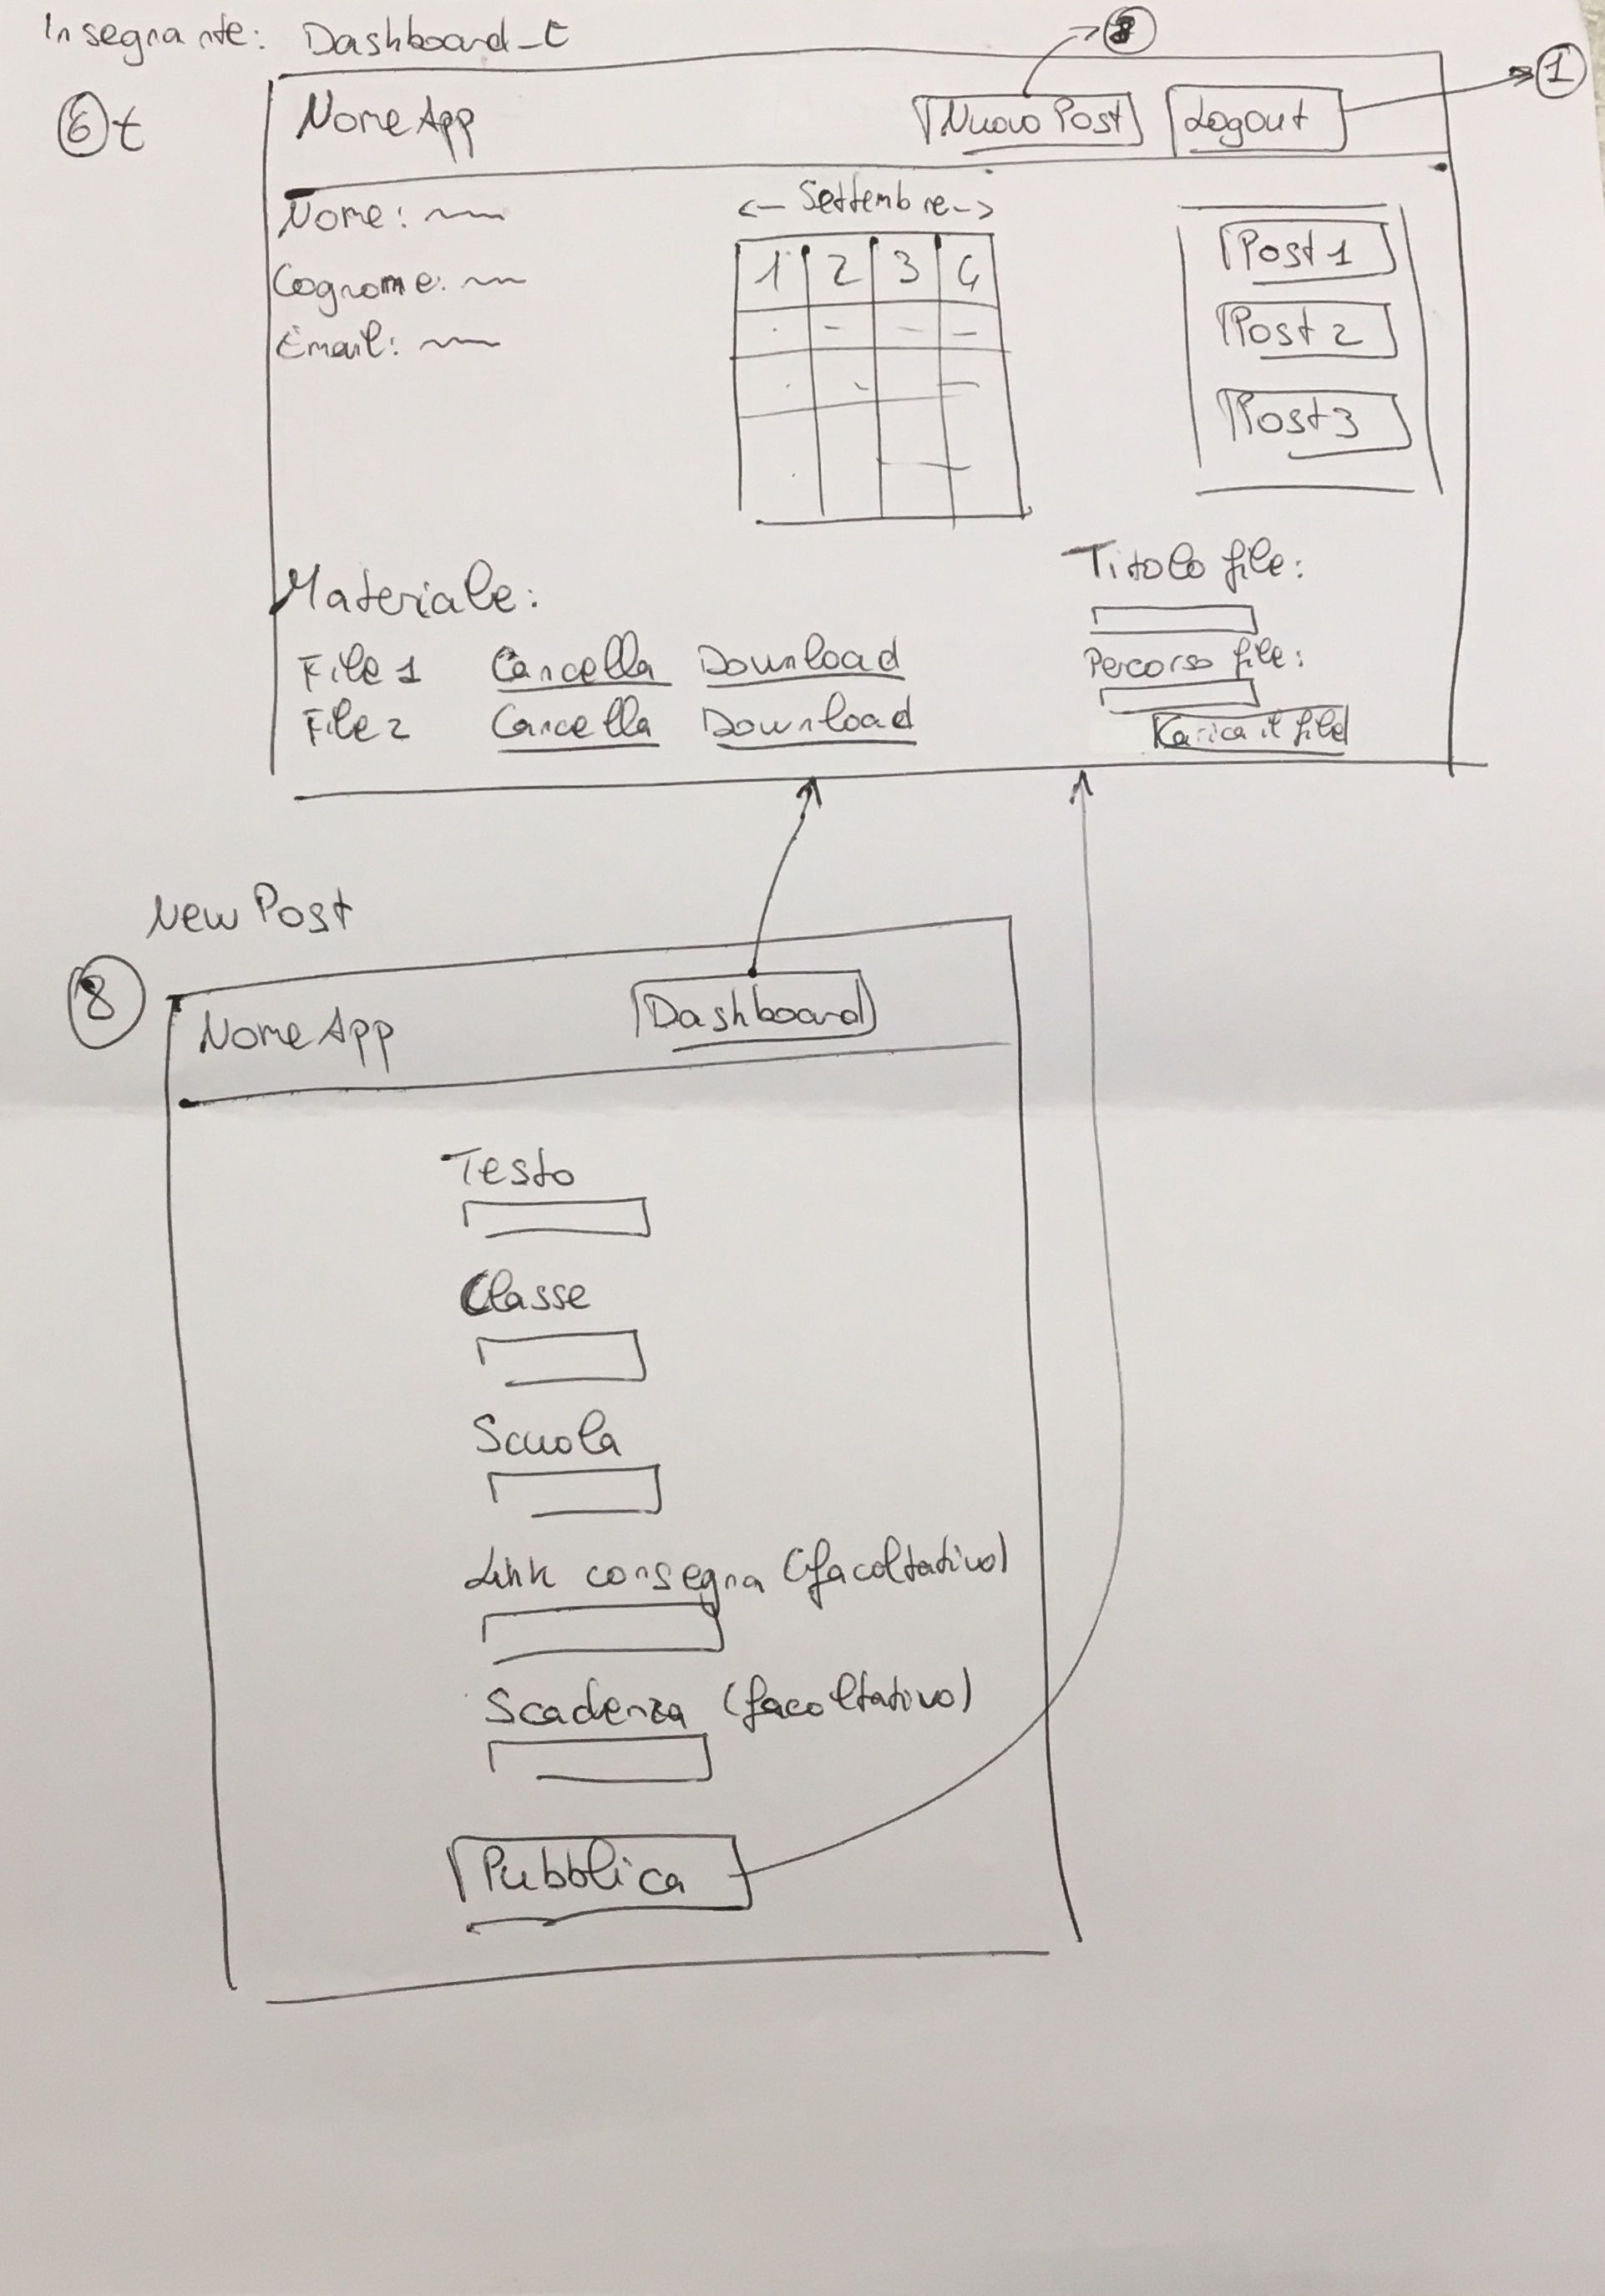 Insegnante: Dashboard_t
8
1
6 t
Nome App
Nuovo Post
Logout
Nome:
Cognome:
Email:
<- Settembre ->
1 2 3 4
Post 1
Post 2
Post 3
Materiale:
File 1 Cancella Download
File 2 Cancella Download
Titolo file:
Percorso file:
Carica il file
New Post
8
Nome App
Dashboard
Testo
Classe
Scuola
Link consegna (facoltativo)
Scadenza (facoltativo)
Pubblica